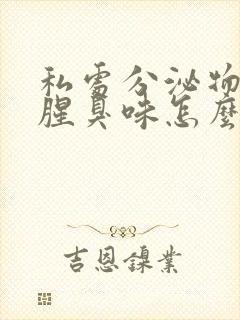 私處分泌物
腥臭味怎麼
吉恩鎳業